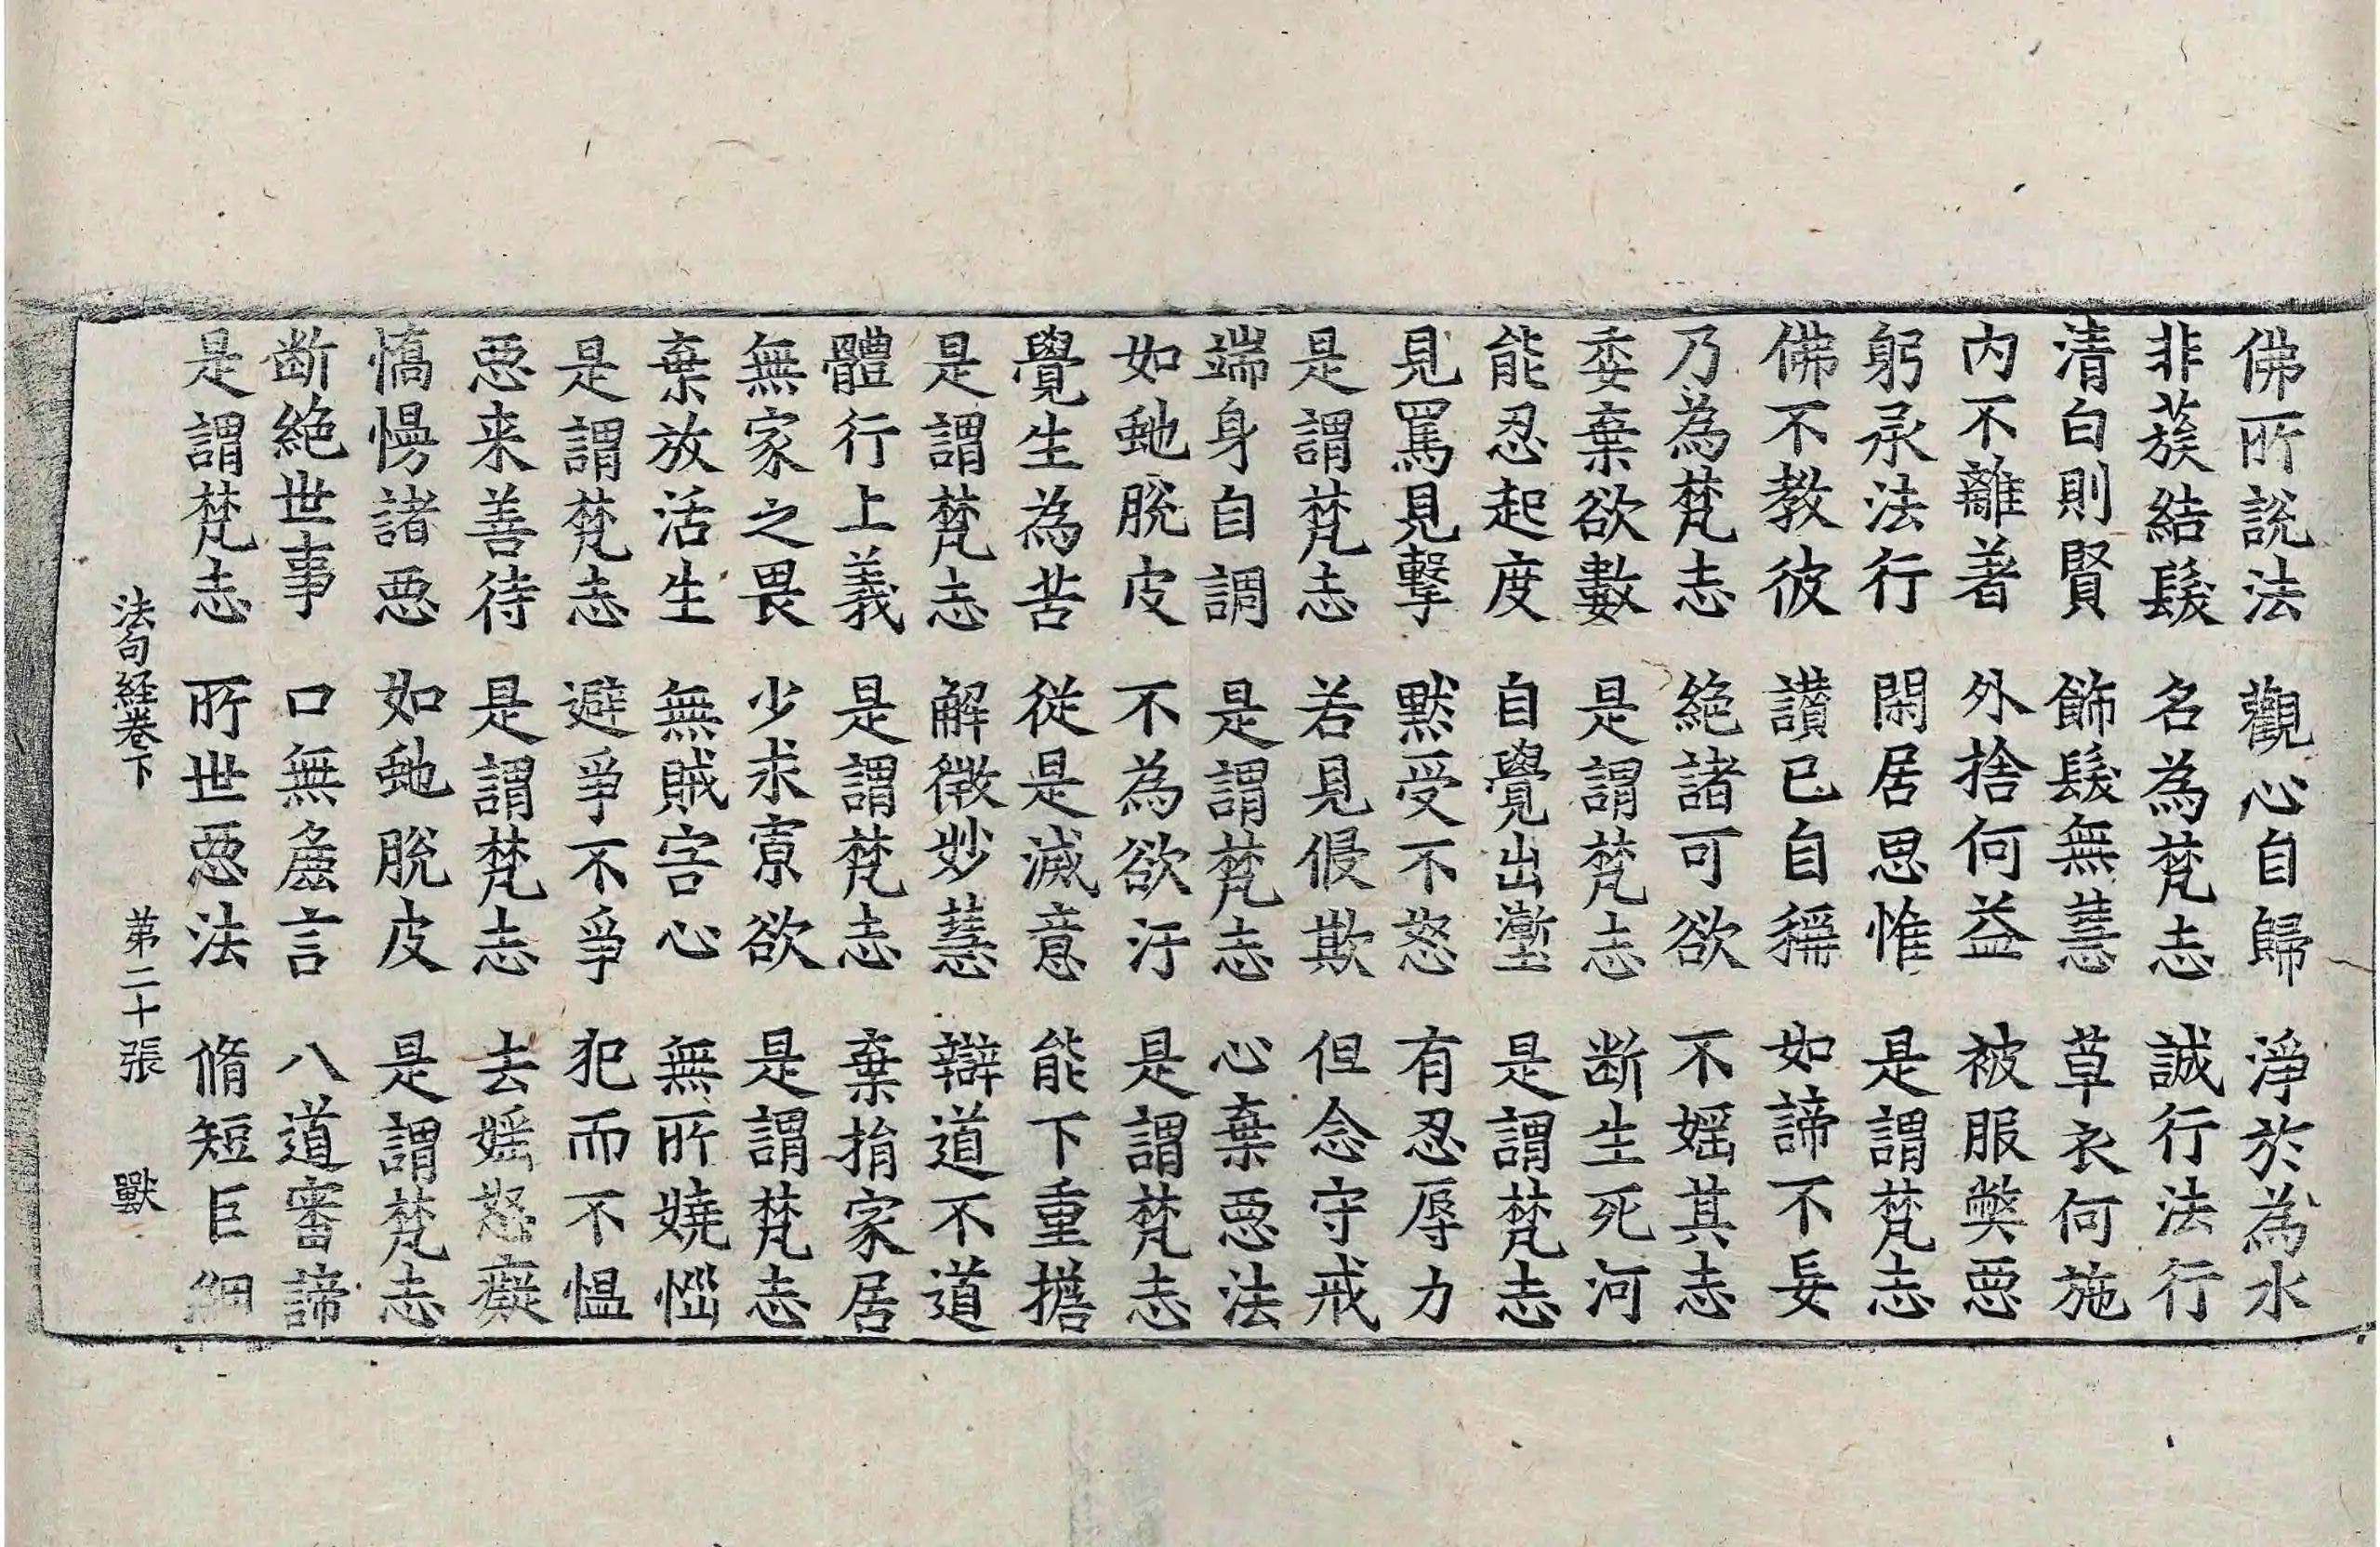 佛所說法 觀心自歸 淨於為水
非蔟結髮 名為梵志 誠行法行
清白則賢 飾髮無慧 草衣何施
內不離著 外捨何益 被服弊惡
躬承法行 閑居思惟 是謂梵志
佛不教彼 讃已自稱 如諦不妄
乃為梵志 絕諸可欲 不婬其志
委棄欲數 是謂梵志 断生死河
能忍起度 自覺出塹 是謂梵志
見罵見擊 默受不怒 有忍辱力
是謂梵志 若見侵欺 但念守戒
端身自調 是謂梵志 心棄惡法
如虵脫皮 不為欲汙 是謂梵志
覺生為苦 從是滅意 能下重擔
是謂梵志 解微妙慧 辯道不道
體行上義 是謂梵志 棄捐家居
無家之畏 少求寡欲 是謂梵志
棄放活生 無賊害心 無所嬈惱
是謂梵志 避爭不爭 犯而不慍
惡来善待 是謂梵志 去婬怒癡
憍慢諸惡 如虵脫皮 是謂梵志
断絕世事 口無麁言 八道審諦
是謂梵志 所世惡法 脩短巨細
法句経卷下 第二十張 獸